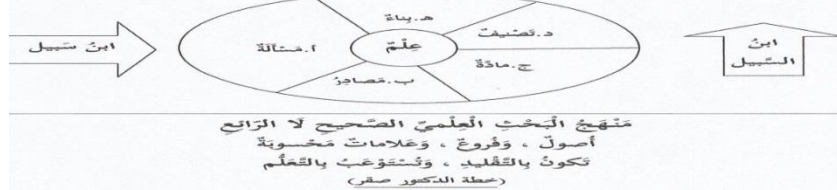 ه. بناءٌ
د. تَصْنيفٌ
ابنُ سَبيل
أ. مَسْألَةٌ
عِلْمٌ
ج. مادَّةٌ
ب. مَصادِرُ
ابنُ
السَّبيل
مَنْهَجُ الْبَحْثِ الْعِلْميِّ الصَّحيحِ لَا الرّائِعِ
أصولٌ ، وَفُروعٌ ، وَعَلاماتٌ مَحْسوبَةٌ
تَكونُ بِالتَّقْليدِ ، وَتُسْتَوْعَبُ بِالتَّعَلُّمِ
(خطة الدكتور صقر)